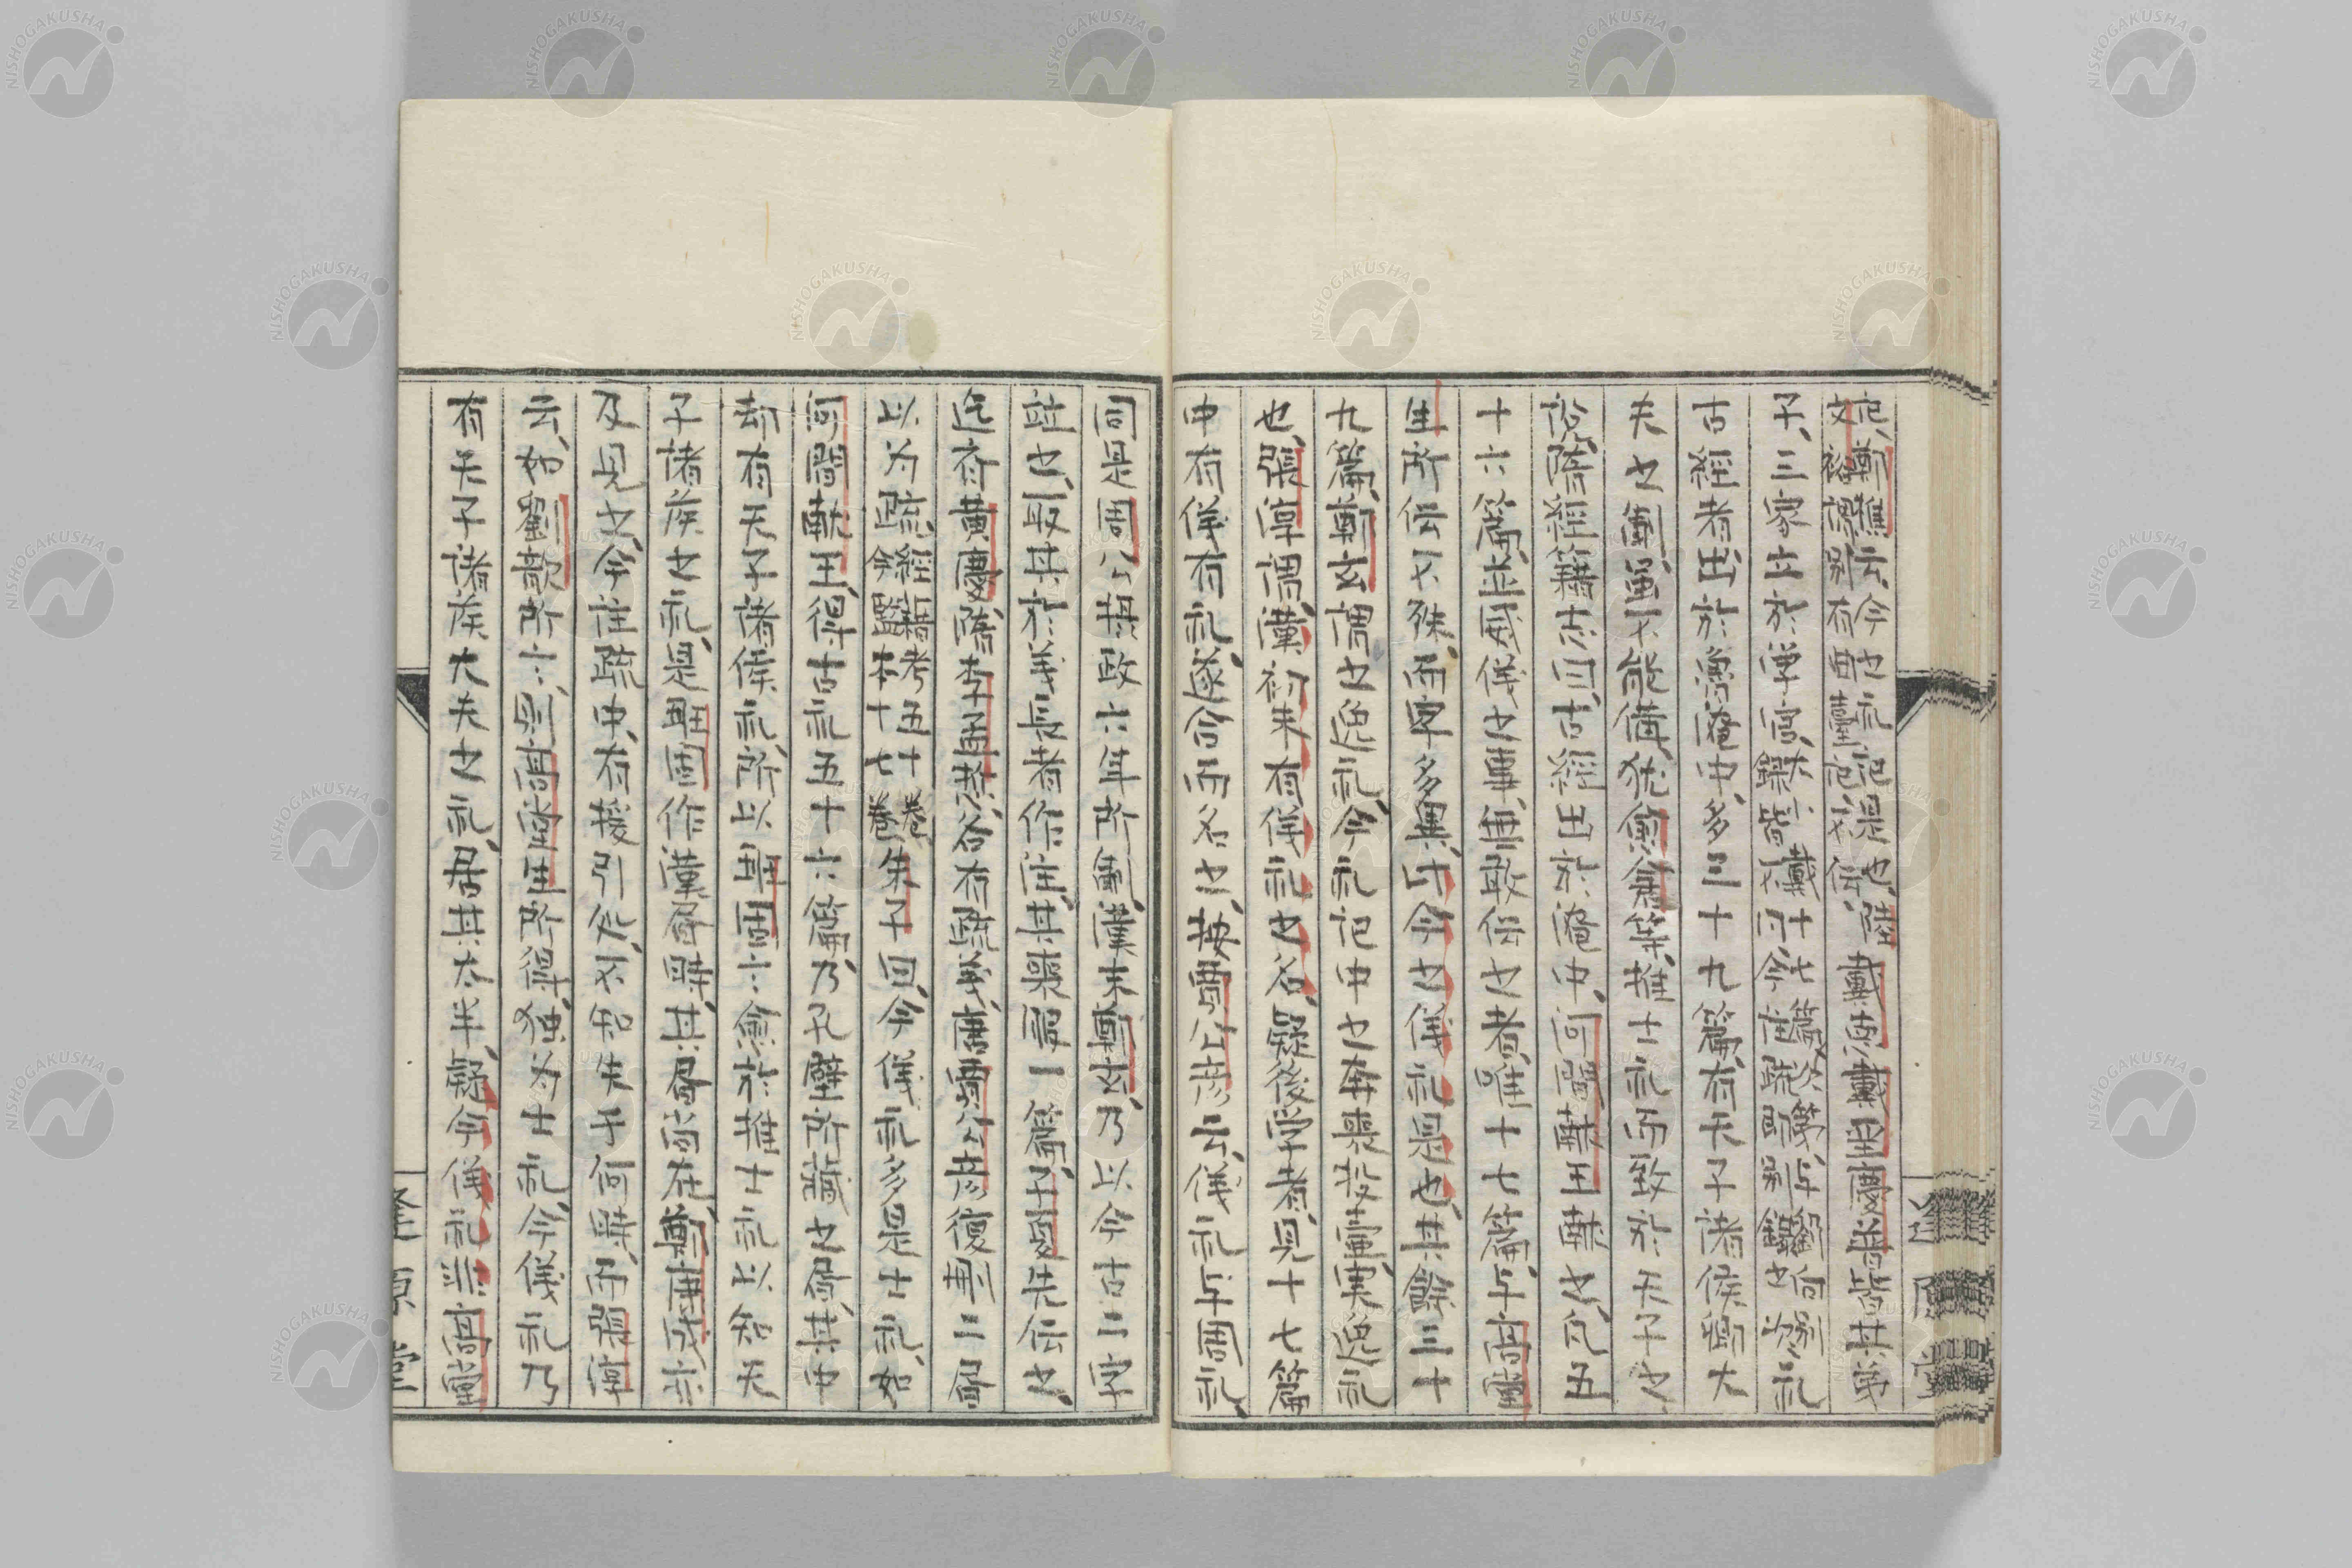 記、鄭樵云、今之礼記是也、陸
文裕謂別有曲臺記、不伝、戴德戴聖慶普皆其弟
子、三家立於学官、大戴十七篇次第、与劉向別
録皆不同、今注疏即別録之次礼
古經者出於魯淹中、多三十九篇、有天子諸侯卿大
夫之制、虽不能備、犹愈倉等推士礼而致於天子之
説、隋經籍志曰、古經出於淹中、河間献王献之、凡五
十六篇、並威儀之事、無敢伝之者、唯十七篇、与高堂
生所伝不殊、而字多異、即今之儀礼是也、其餘三十
九篇、鄭玄謂之逸礼、今礼記中之奔喪投壷実逸礼
也、張淳謂、漢初未有儀礼之名、疑後学者、見十七篇
中有儀有礼、遂合而名之、按賈公彦云、儀礼与周礼、
同是周公摂政六年所制、漢末鄭玄、乃以今古二字
竝之、取其於義長者作注、其喪服一篇、子夏先伝之、
迄斉黄慶隋李孟悊、各有疏義、唐賈公彦復刪二君
以为疏、經籍考五十卷
今監本十七卷朱子曰、今儀礼多是士礼、如
河間献王、得古礼五十六篇、乃孔壁所蔵之書、其中
却有天子諸侯礼、所以班固云愈於推士礼以知天
子諸侯之礼、是班固作漢書時、其書尚在、鄭康成亦
及見之、今注疏中、有援引処、不知失于何時、而張淳
云、如劉歆所云、則高堂生所得、独为士礼、今儀礼乃
有天子諸侯大夫之礼、居其大半、疑今儀礼非高堂